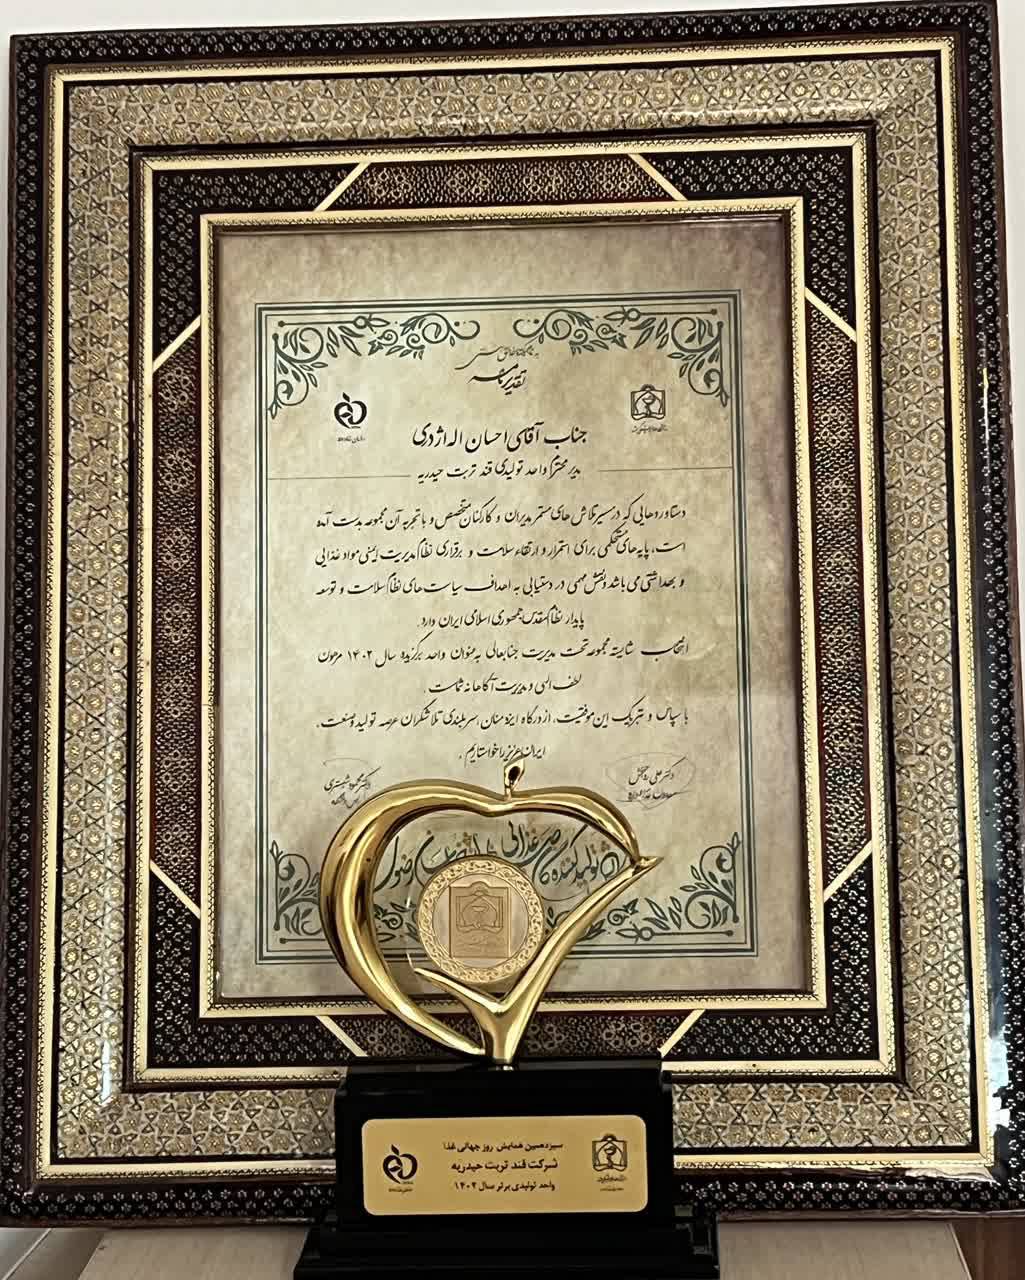 به نام یگانه خالق هستی
تقدیرنامه
جناب آقای احسان اله اژدری
مدیر محترم واحد تولیدی قند تربت حیدریه
دستاوردهایی که در مسیر تلاش های مستمر مدیران و کارکنان متخصص و با تجربه آن مجموعه بدست آمده
است، پایه های محکمی برای استمرار و ارتقاء سلامت و برقراری نظام مدیریت ایمنی مواد غذایی
و بهداشتی می باشد و نقش مهمی در دستیابی به اهداف سیاست های نظام سلامت و توسعه
پایدار نظام مقدس جمهوری اسلامی ایران دارد.
انتخاب شایسته مجموعه تحت مدیریت جنابعالی به عنوان واحد برگزیده سال ۱۴۰۲ مرهون
لطف الهی و مدیریت آگاهانه شماست.
با سپاس و تبریک این موفقیت، از درگاه ایزد منان، سربلندی تلاشگران عرصه تولید و صنعت،
ایران عزیز را خواستاریم.
دکتر علی
دکتر محمود شبستری
سیزدهمین همایش روز جهانی غذا
شرکت قند تربت حیدریه
واحد تولیدی برتر سال ۱۴۰۲